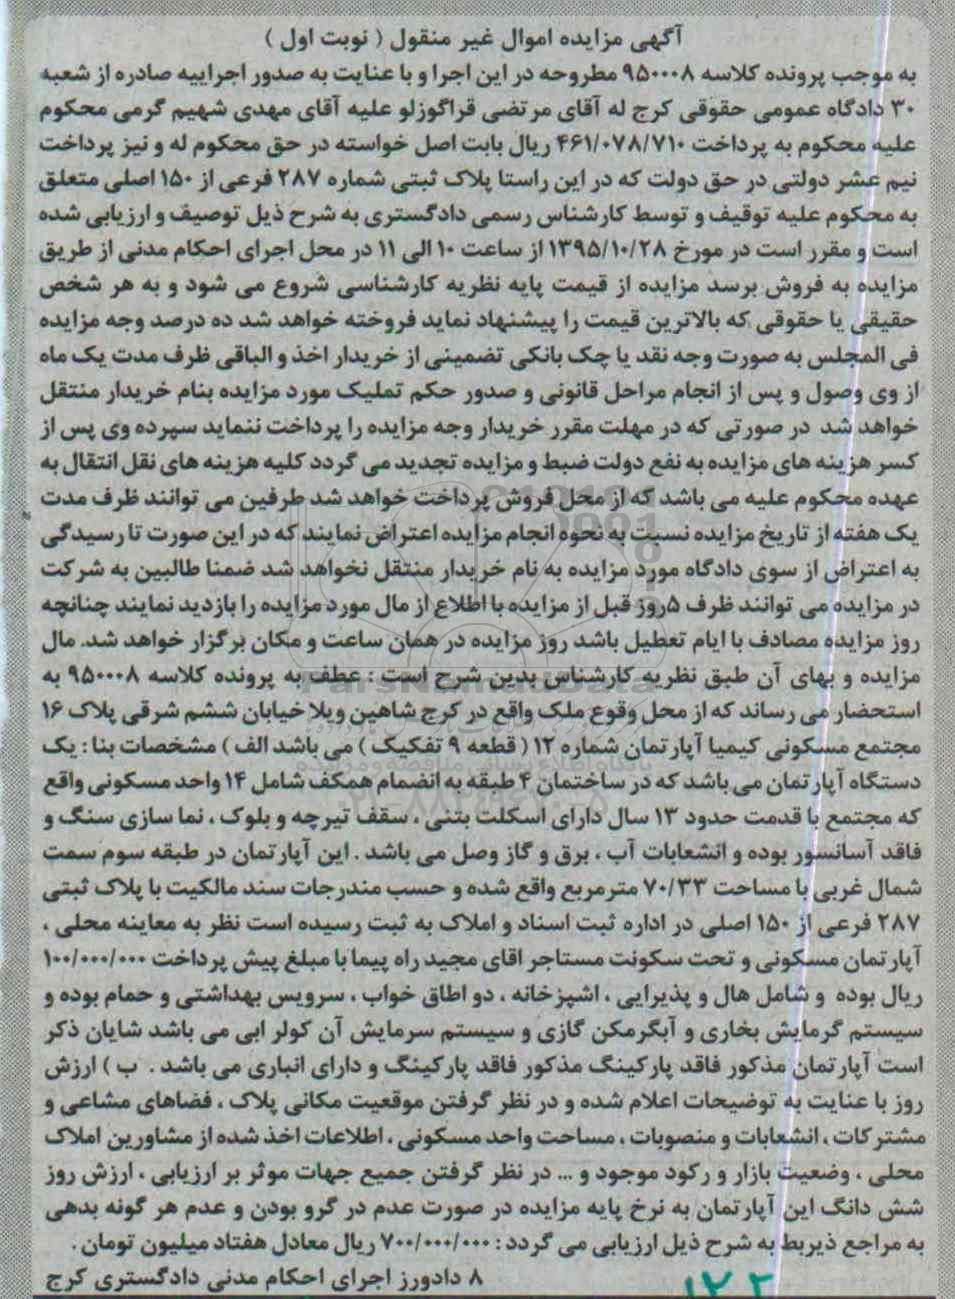 آگهی مزایده اموال غیر منقول ( نوبت اول )
به موجب پرونده کلاسه ۹۵۰۰۰۸ مطروحه در این اجرا و با عنایت به صدور اجراییه صادره از شعبه
۳۰ دادگاه عمومی حقوقی کرج له آقای مرتضی قراگوزلو علیه آقای مهدی شهیم گرمی محکوم
علیه محکوم به پرداخت ۴۶۱/۰۷۸/۷۱۰ ریال بابت اصل خواسته در حق محکوم له و نیز پرداخت
نیم عشر دولتی در حق دولت که در این راستا پلاک ثبتی شماره ۲۸۷ فرعی از ۱۵۰ اصلی متعلق
به محکوم علیه توقیف و توسط کارشناس رسمی دادگستری به شرح ذیل توصیف و ارزیابی شده
است و مقرر است در مورخ ۱۳۹۵/۱۰/۲۸ از ساعت ۱۰ الی ۱۱ در محل اجرای احکام مدنی از طریق
مزایده به فروش برسد مزایده از قیمت پایه نظریه کارشناسی شروع می شود و به هر شخص
حقیقی یا حقوقی که بالاترین قیمت را پیشنهاد نماید فروخته خواهد شد ده درصد وجه مزایده
فی المجلس به صورت وجه نقد یا چک بانکی تضمینی از خریدار اخذ و الباقی ظرف مدت یک ماه
از وی وصول و پس از انجام مراحل قانونی و صدور حکم تملیک مورد مزایده بنام خریدار منتقل
خواهد شد در صورتی که در مهلت مقرر خریدار وجه مزایده را پرداخت ننماید سپرده وی پس از
کسر هزینه های مزایده به نفع دولت ضبط و مزایده تجدید می گردد کلیه هزینه های نقل انتقال به
عهده محکوم علیه می باشد که از محل فروش پرداخت خواهد شد طرفین می توانند ظرف مدت
یک هفته از تاریخ مزایده نسبت به نحوه انجام مزایده اعتراض نمایند که در این صورت تا رسیدگی
به اعتراض از سوی دادگاه مورد مزایده به نام خریدار منتقل نخواهد شد ضمنا طالبین به شرکت
در مزایده می توانند ظرف ۵روز قبل از مزایده با اطلاع از مال مورد مزایده را بازدید نمایند چنانچه
روز مزایده مصادف با ایام تعطیل باشد روز مزایده در همان ساعت و مکان برگزار خواهد شد. مال
مزایده و بهای آن طبق نظریه کارشناس بدین شرح است : عطف به پرونده کلاسه ۹۵۰۰۰۸ به
استحضار می رساند که از محل وقوع ملک واقع در کرج شاهین ویلا خیابان ششم شرقی پلاک ۱۶
مجتمع مسکونی کیمیا آپارتمان شماره ۱۲ ( قطعه ۹ تفکیک ) می باشد الف ) مشخصات بنا : یک
دستگاه آپارتمان می باشد که در ساختمان ۴ طبقه به انضمام همکف شامل ۱۴ واحد مسکونی واقع
که مجتمع با قدمت حدود ۱۳ سال دارای اسکلت بتنی ، سقف تیرچه و بلوک ، نما سازی سنگ و
فاقد آسانسور بوده و انشعابات آب ، برق و گاز وصل می باشد . این آپارتمان در طبقه سوم سمت
شمال غربی با مساحت ۷۰/۳۳ مترمربع واقع شده و حسب مندرجات سند مالکیت با پلاک ثبتی
۲۸۷ فرعی از ۱۵۰ اصلی در اداره ثبت اسناد و املاک به ثبت رسیده است نظر به معاینه محلی ،
آپارتمان مسکونی و تحت سکونت مستاجر اقای مجید راه پیما با مبلغ پیش پرداخت ۱۰۰/۰۰۰/۰۰۰
ریال بوده و شامل هال و پذیرایی ، اشپزخانه ، دو اطاق خواب ، سرویس بهداشتی و حمام بوده و
سیستم گرمایش بخاری و آبگرمکن گازی و سیستم سرمایش آن کولر ابی می باشد شایان ذکر
است آپارتمان مذکور فاقد پارکینگ مذکور فاقد پارکینگ و دارای انباری می باشد . ب ) ارزش
روز با عنایت به توضیحات اعلام شده و در نظر گرفتن موقعیت مکانی پلاک ، فضاهای مشاعی و
مشترکات ، انشعابات و منصوبات ، مساحت واحد مسکونی ، اطلاعات اخذ شده از مشاورین املاک
محلی ، وضعیت بازار و رکود موجود و ... در نظر گرفتن جمیع جهات موثر بر ارزیابی ، ارزش روز
شش دانگ این آپارتمان به نرخ پایه مزایده در صورت عدم در گرو بودن و عدم هر گونه بدهی
به مراجع ذیربط به شرح ذیل ارزیابی می گردد : ۷۰۰/۰۰۰/۰۰۰ ریال معادل هفتاد میلیون تومان .
۸ دادورز اجرای احکام مدنی دادگستری کرج
ParsNamadData